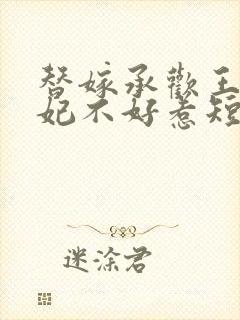 替嫁承欢王
妃不好惹短
迷涂君